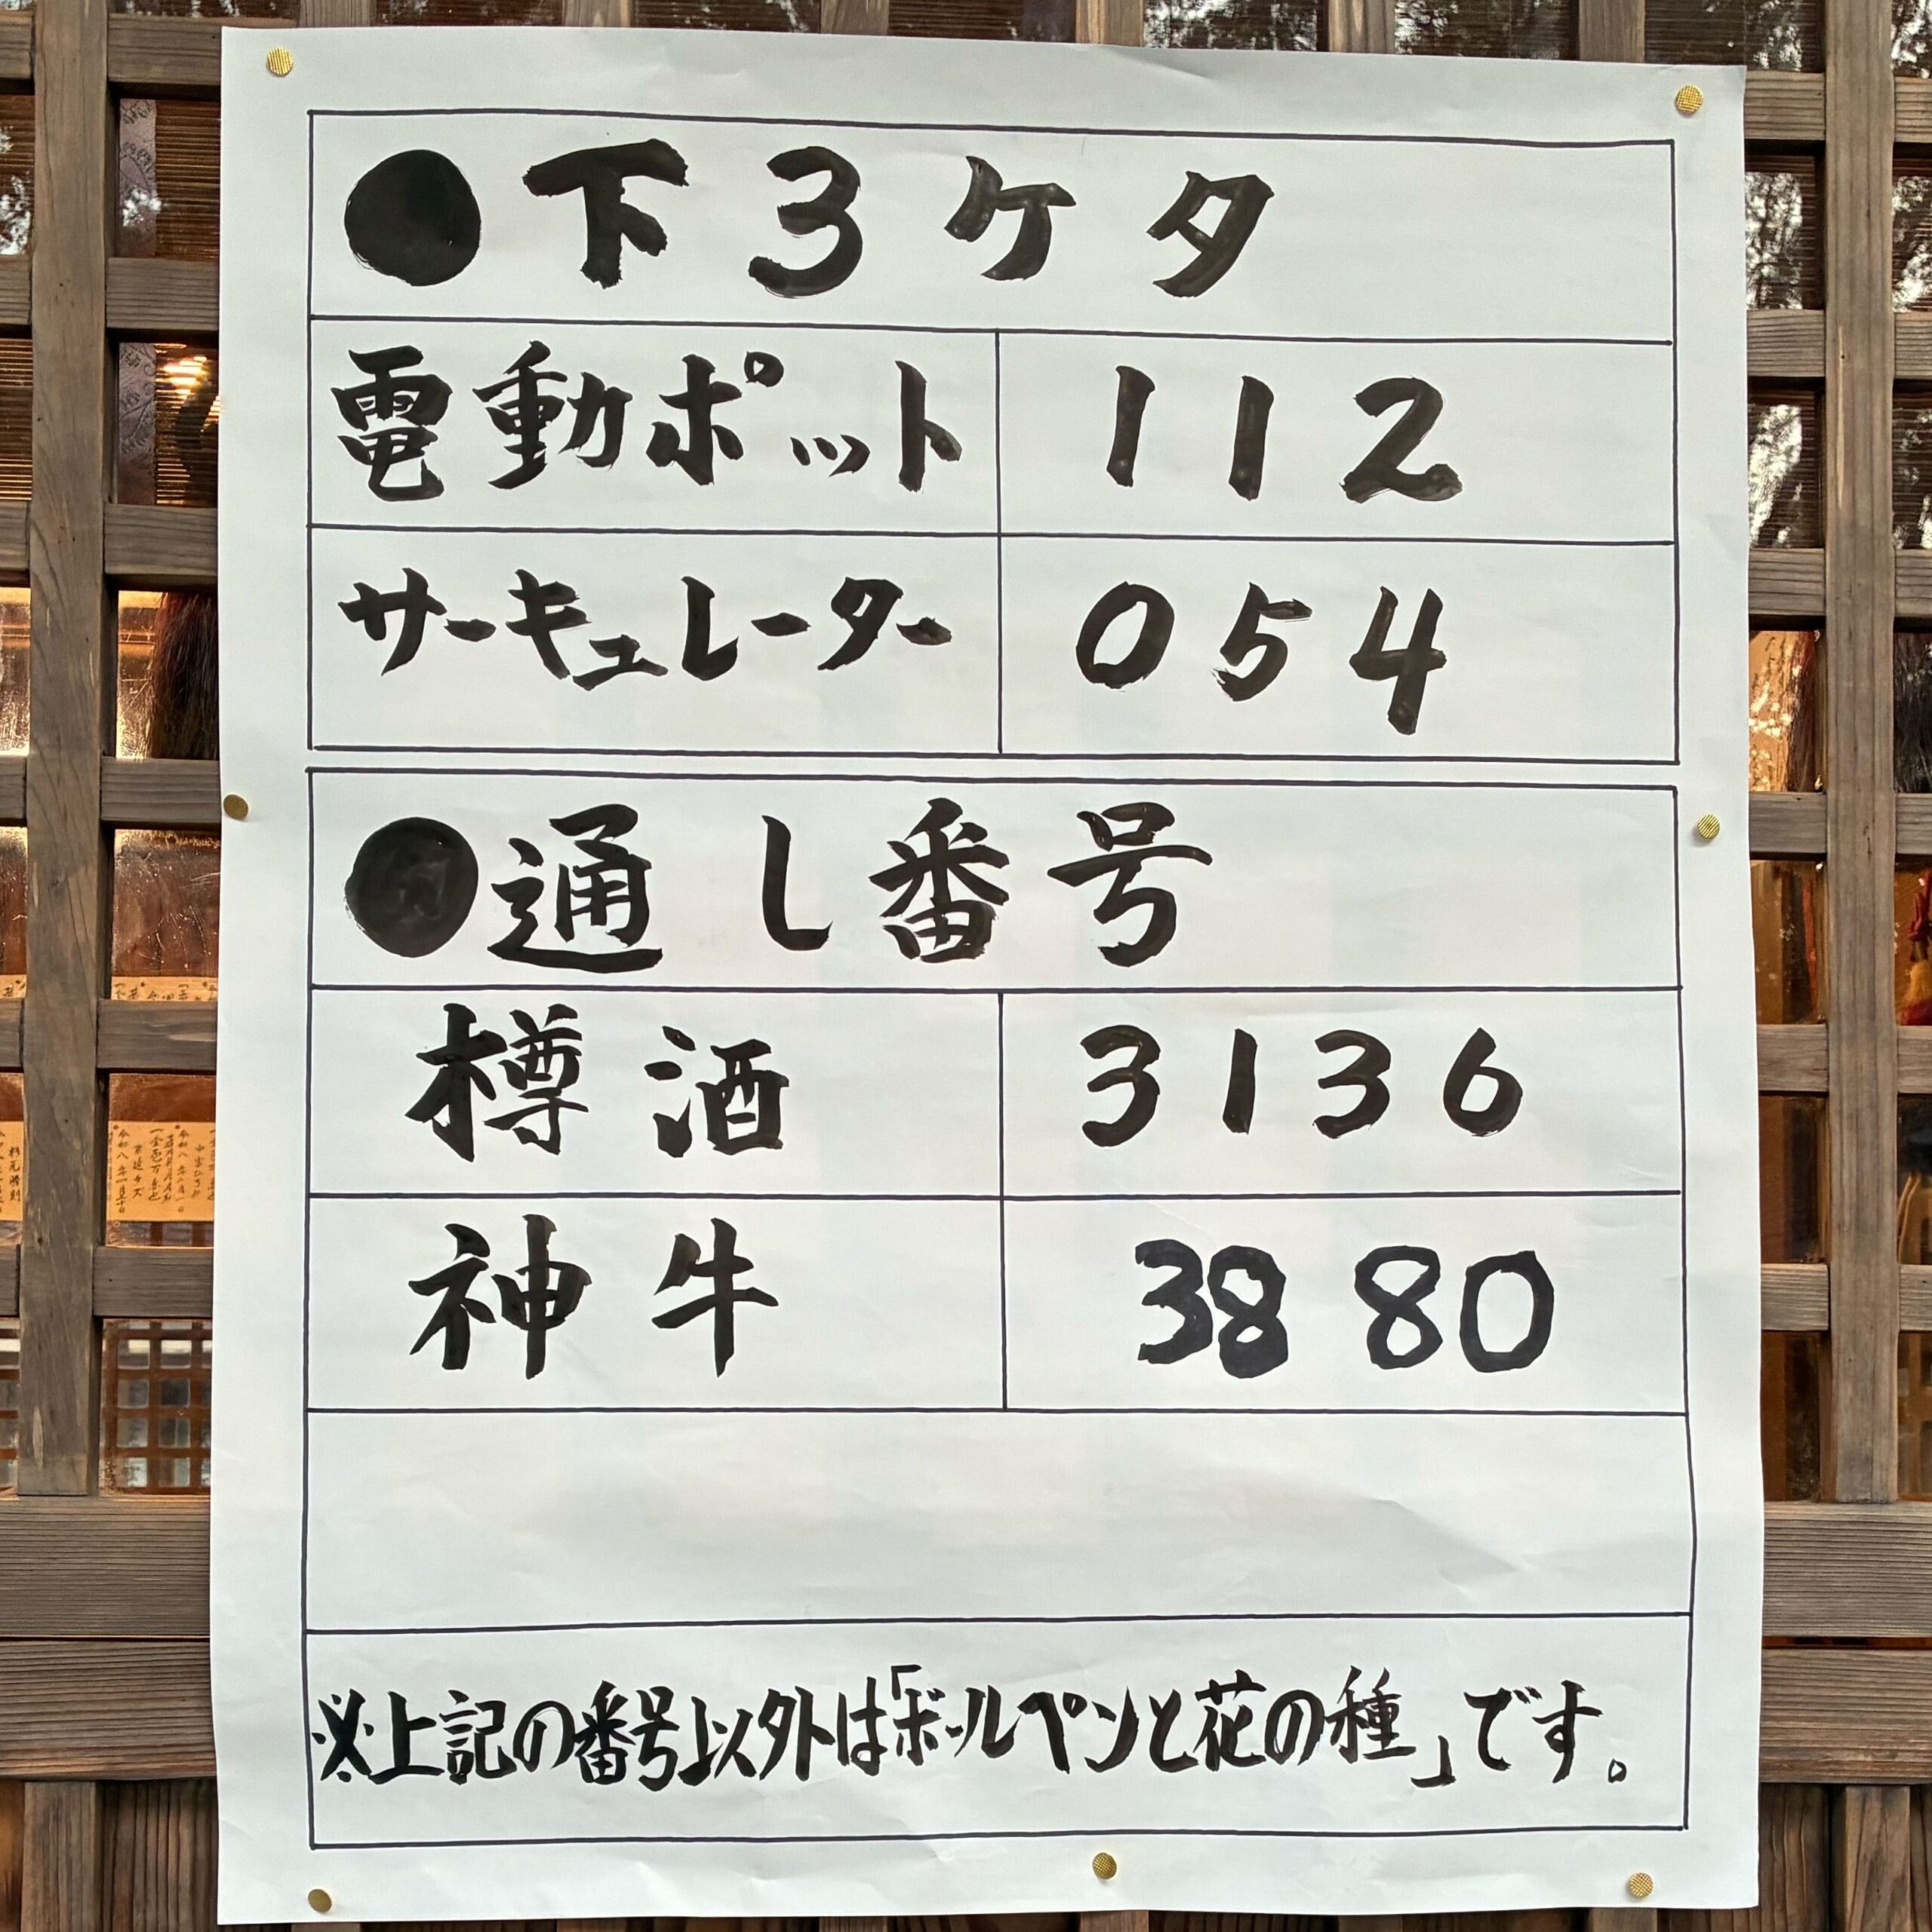 ●下3ケタ
電動ポット 112
サーキュレーター 054
●通し番号
樽酒 3136
神牛 3880
※上記の番号以外は「ボールペンと花の種」です。